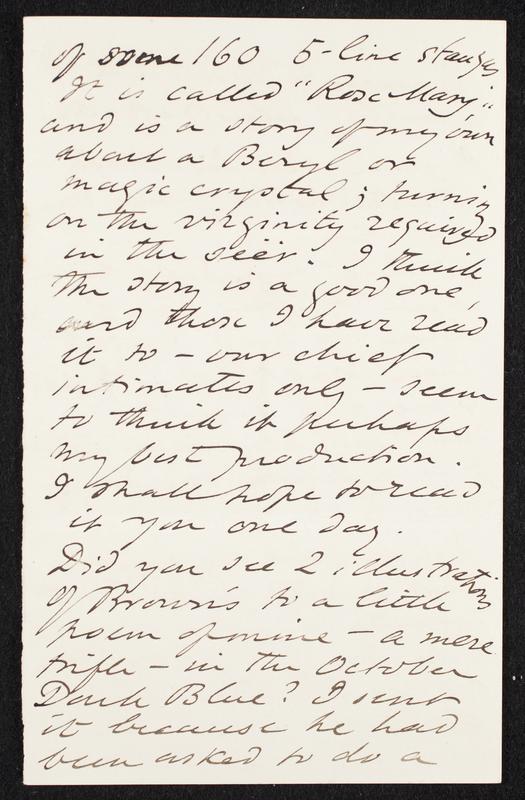 of some 160 5-line stanzas
It is called "Rose Mary",
and is a story of my own
about a Beryl or
magic crystal; turning
on the virginity required
in the seër. I think
the story is a good one,
and those I have read
it to – our chief
intimates only – seem
to think it perhaps
my best production.
I shall hope to read
it you one day.
Did you see 2 illustrations
of Brown's to a little
poem of mine – a mere
trifle – in the October
Dark Blue? I sent
it because he had
been asked to do a